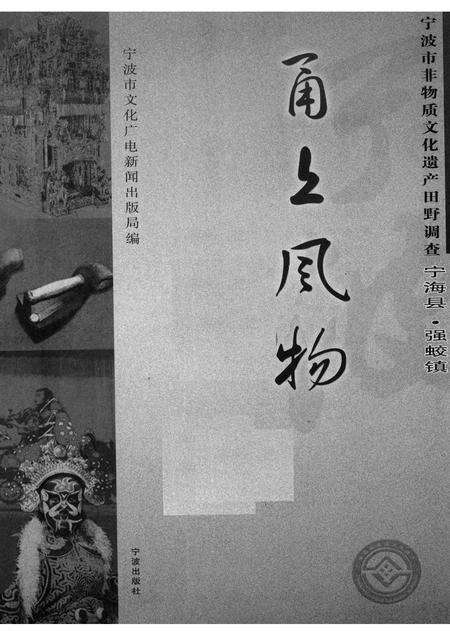 宁波市非物质文化遗产田野调查
宁海县·强蛟镇
甬上风物
宁波市文化广电新闻出版局编
宁波出版社